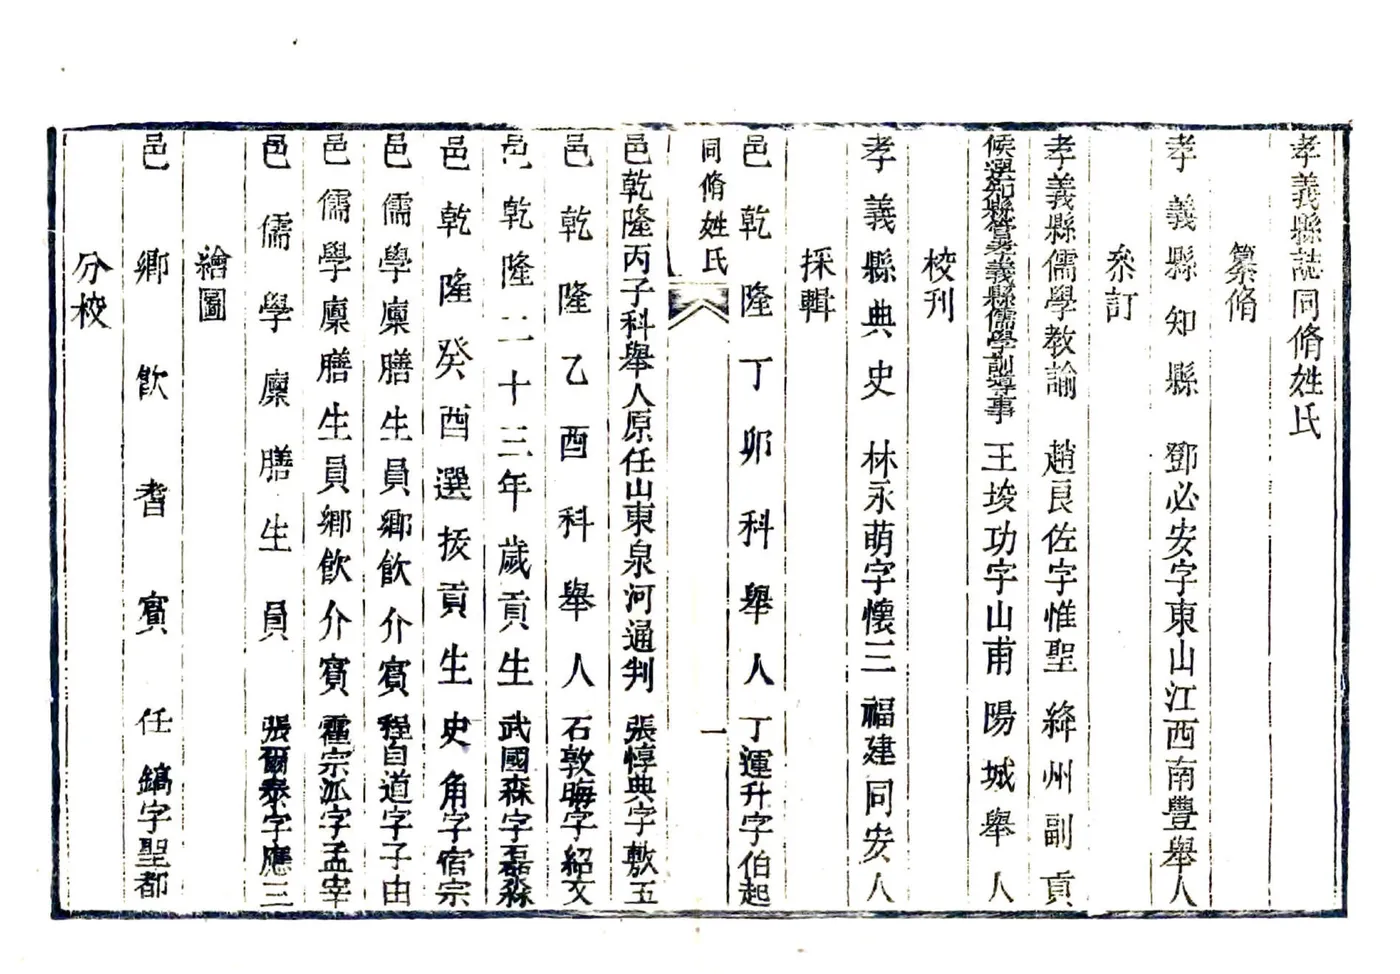 孝義縣誌同脩姓氏
纂脩
孝義縣知縣 鄧必安字東山江西南豐舉人
叅訂
孝義縣儒學教諭 趙良佐字惟聖 絳州副貢
候選知縣管孝義縣儒學訓導事 王埈功字山甫 陽城舉人
校刊
孝義縣典史 林永萌字懷三 福建同安人
採輯
邑乾隆丁卯科舉人 丁運升字伯起
同脩姓氏 一
邑乾隆丙子科舉人原任山東泉河通判 張惇典字敷五
邑乾隆乙酉科舉人 石敦晦字紹文
邑乾隆二十三年歲貢生 武國森字磊淼
邑乾隆癸酉選拔貢生 史角字宿宗
邑儒學廩膳生員鄉飮介賓 程自道字子由
邑儒學廩膳生員鄉飮介賓 霍宗派字孟宰
邑儒學廩膳生員 張爾泰字應三
繪圖
邑鄉飮耆賓 任鎬字聖都
分校